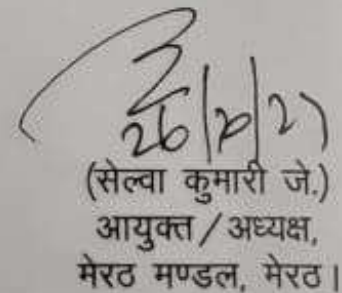 (सेल्वा कुमारी जे.)
आयुक्त/अध्यक्ष,
मेरठ मण्डल, मेरठ।